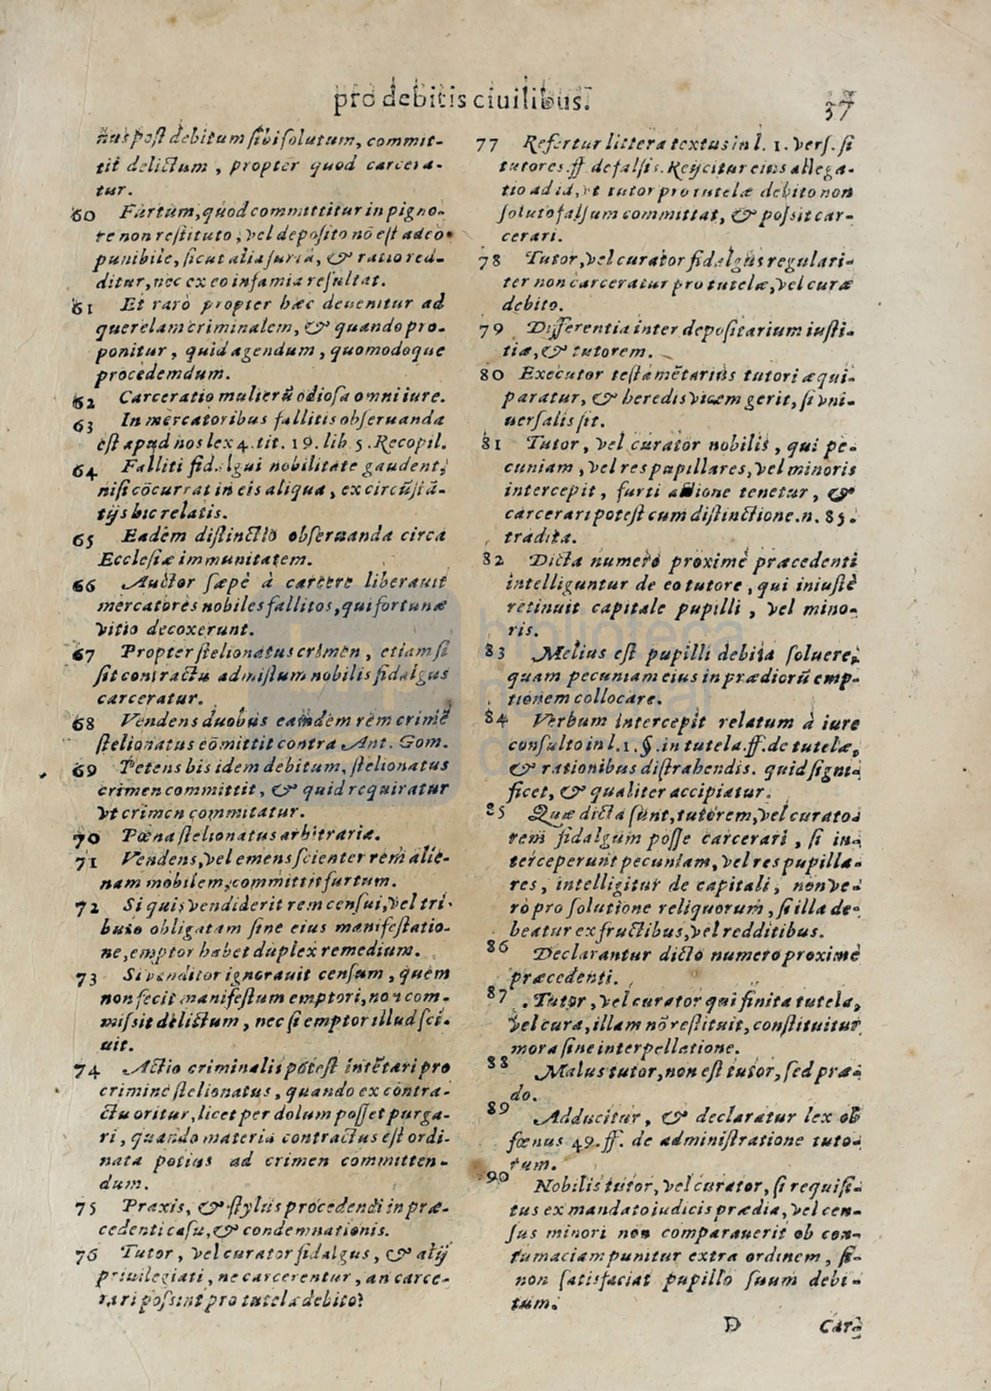 pro debitis ciuilibus.
37
nus post debitum sibi solutum, commit-
tit delictum, propter quod carcera-
tur.
60 Fürtum, quod committitur in pigno-
re non restituto, vel deposito nō est adeo
punibile, sicut alia furta, & ratio red-
ditur, nec ex eo infamia resultat.
61 Et rarò propter hæc deuenitur ad
querelam criminalem, & quando pro-
ponitur, quid agendum, quomodoque
procedemdum.
62 Carceratio mulierū odiosa omni iure.
63 In mercatoribus fallitis obseruanda
est apud nos lex 4. tit. 19. lib 5. Recopil.
64 Falliti fidalgui nobilitate gaudent,
nisi cōcurrat in eis aliqua, ex circūstā-
tijs hic relatis.
65 Eadem distinctio obseruanda circa
Ecclesiæ immunitatem.
66 Auctor sæpè à carcere liberauit
mercatores nobiles fallitos, qui fortunæ
vitio decoxerunt.
67 Propter stelionatus crimen, etiam si
sit contractu admistum nobilis fidalgus
carceratur.
68 Vendens duobus eamdem rem crimē
stelionatus cōmittit contra Ant. Gom.
69 Petens bis idem debitum, stelionatus
crimen committit, & quid requiratur
vt crimen commitatur.
70 Pœna stelionatus arbitraria.
71 Vendens, vel emens scienter rem alie-
nam mobilem, committit furtum.
72 Si quis vendiderit rem censui, vel tri-
buto obligatam sine eius manifestatio-
ne, emptor habet duplex remedium.
73 Si venditor ignorauit censum, quem
non fecit manifestum emptori, non com-
missit delictum, nec si emptor illud sci-
uit.
74 Actio criminalis potest intētari pro
crimine stelionatus, quando ex contra-
ctu oritur, licet per dolum posset purga-
ri, quando materia contractus est ordi-
nata potius ad crimen committen-
dum.
75 Praxis, & stylus procedendi in præ-
cedenti casu, & condemnationis.
76 Tutor, vel curator fidalgus, & alij
priuilegiati, ne carcerentur, an carce-
rari possint pro tutelæ debito?
77 Refertur littera textus in l. 1. vers. si
tutores. ff. de falsis. Reijcitur eius allega-
tio ad id, vt tutor pro tutelæ debito non
soluto falsum committat, & possit car-
cerari.
78 Tutor, vel curator fidalgus regulari-
ter non carceratur pro tutelæ, vel curæ
debito.
79 Differentia inter depositarium iusti-
tiæ, & tutorem.
80 Executor testamētarius tutori æqui-
paratur, & heredis vicem gerit, si vni-
uersalis sit.
81 Tutor, vel curator nobilis, qui pe-
cuniam, vel res pupillares, vel minoris
intercepit, furti actione tenetur, &
carcerari potest cum distinctione. n. 85.
tradita.
82 Dicta numero proximè præcedenti
intelliguntur de eo tutore, qui iniustè
retinuit capitale pupilli, vel mino-
ris.
83 Melius est pupilli debita soluere,
quam pecuniam eius in prædiorū emp-
tionem collocare.
84 Verbum intercepit relatum à iure
consulto in l. 1. §. in tutela. ff. de tutelæ,
& rationibus distrahendis. quid signi-
ficet, & qualiter accipiatur.
85 Quæ dicta sunt, tutorem, vel curato-
rem fidalgum posse carcerari, si in-
terceperunt pecuniam, vel res pupilla-
res, intelligitur de capitali, non ve-
rò pro solutione reliquorum, si illa de-
beatur ex fructibus, vel redditibus.
86 Declarantur dicto numero proximè
præcedenti.
87 Tutor, vel curator qui finita tutela,
vel cura, illam nō restituit, constituitur
mora sine interpellatione.
88 Malus tutor, non est tutor, sed præ-
do.
89 Adducitur, & declaratur lex ob
fœnus 49. ff. de administratione tuto-
rum.
90 Nobilis tutor, vel curator, si requisi-
tus ex mandato iudicis prædia, vel cen-
sus minori non comparauerit ob con-
tumaciam punitur extra ordinem, si-
non satisfaciat pupillo suum debi-
tum.
D Car-